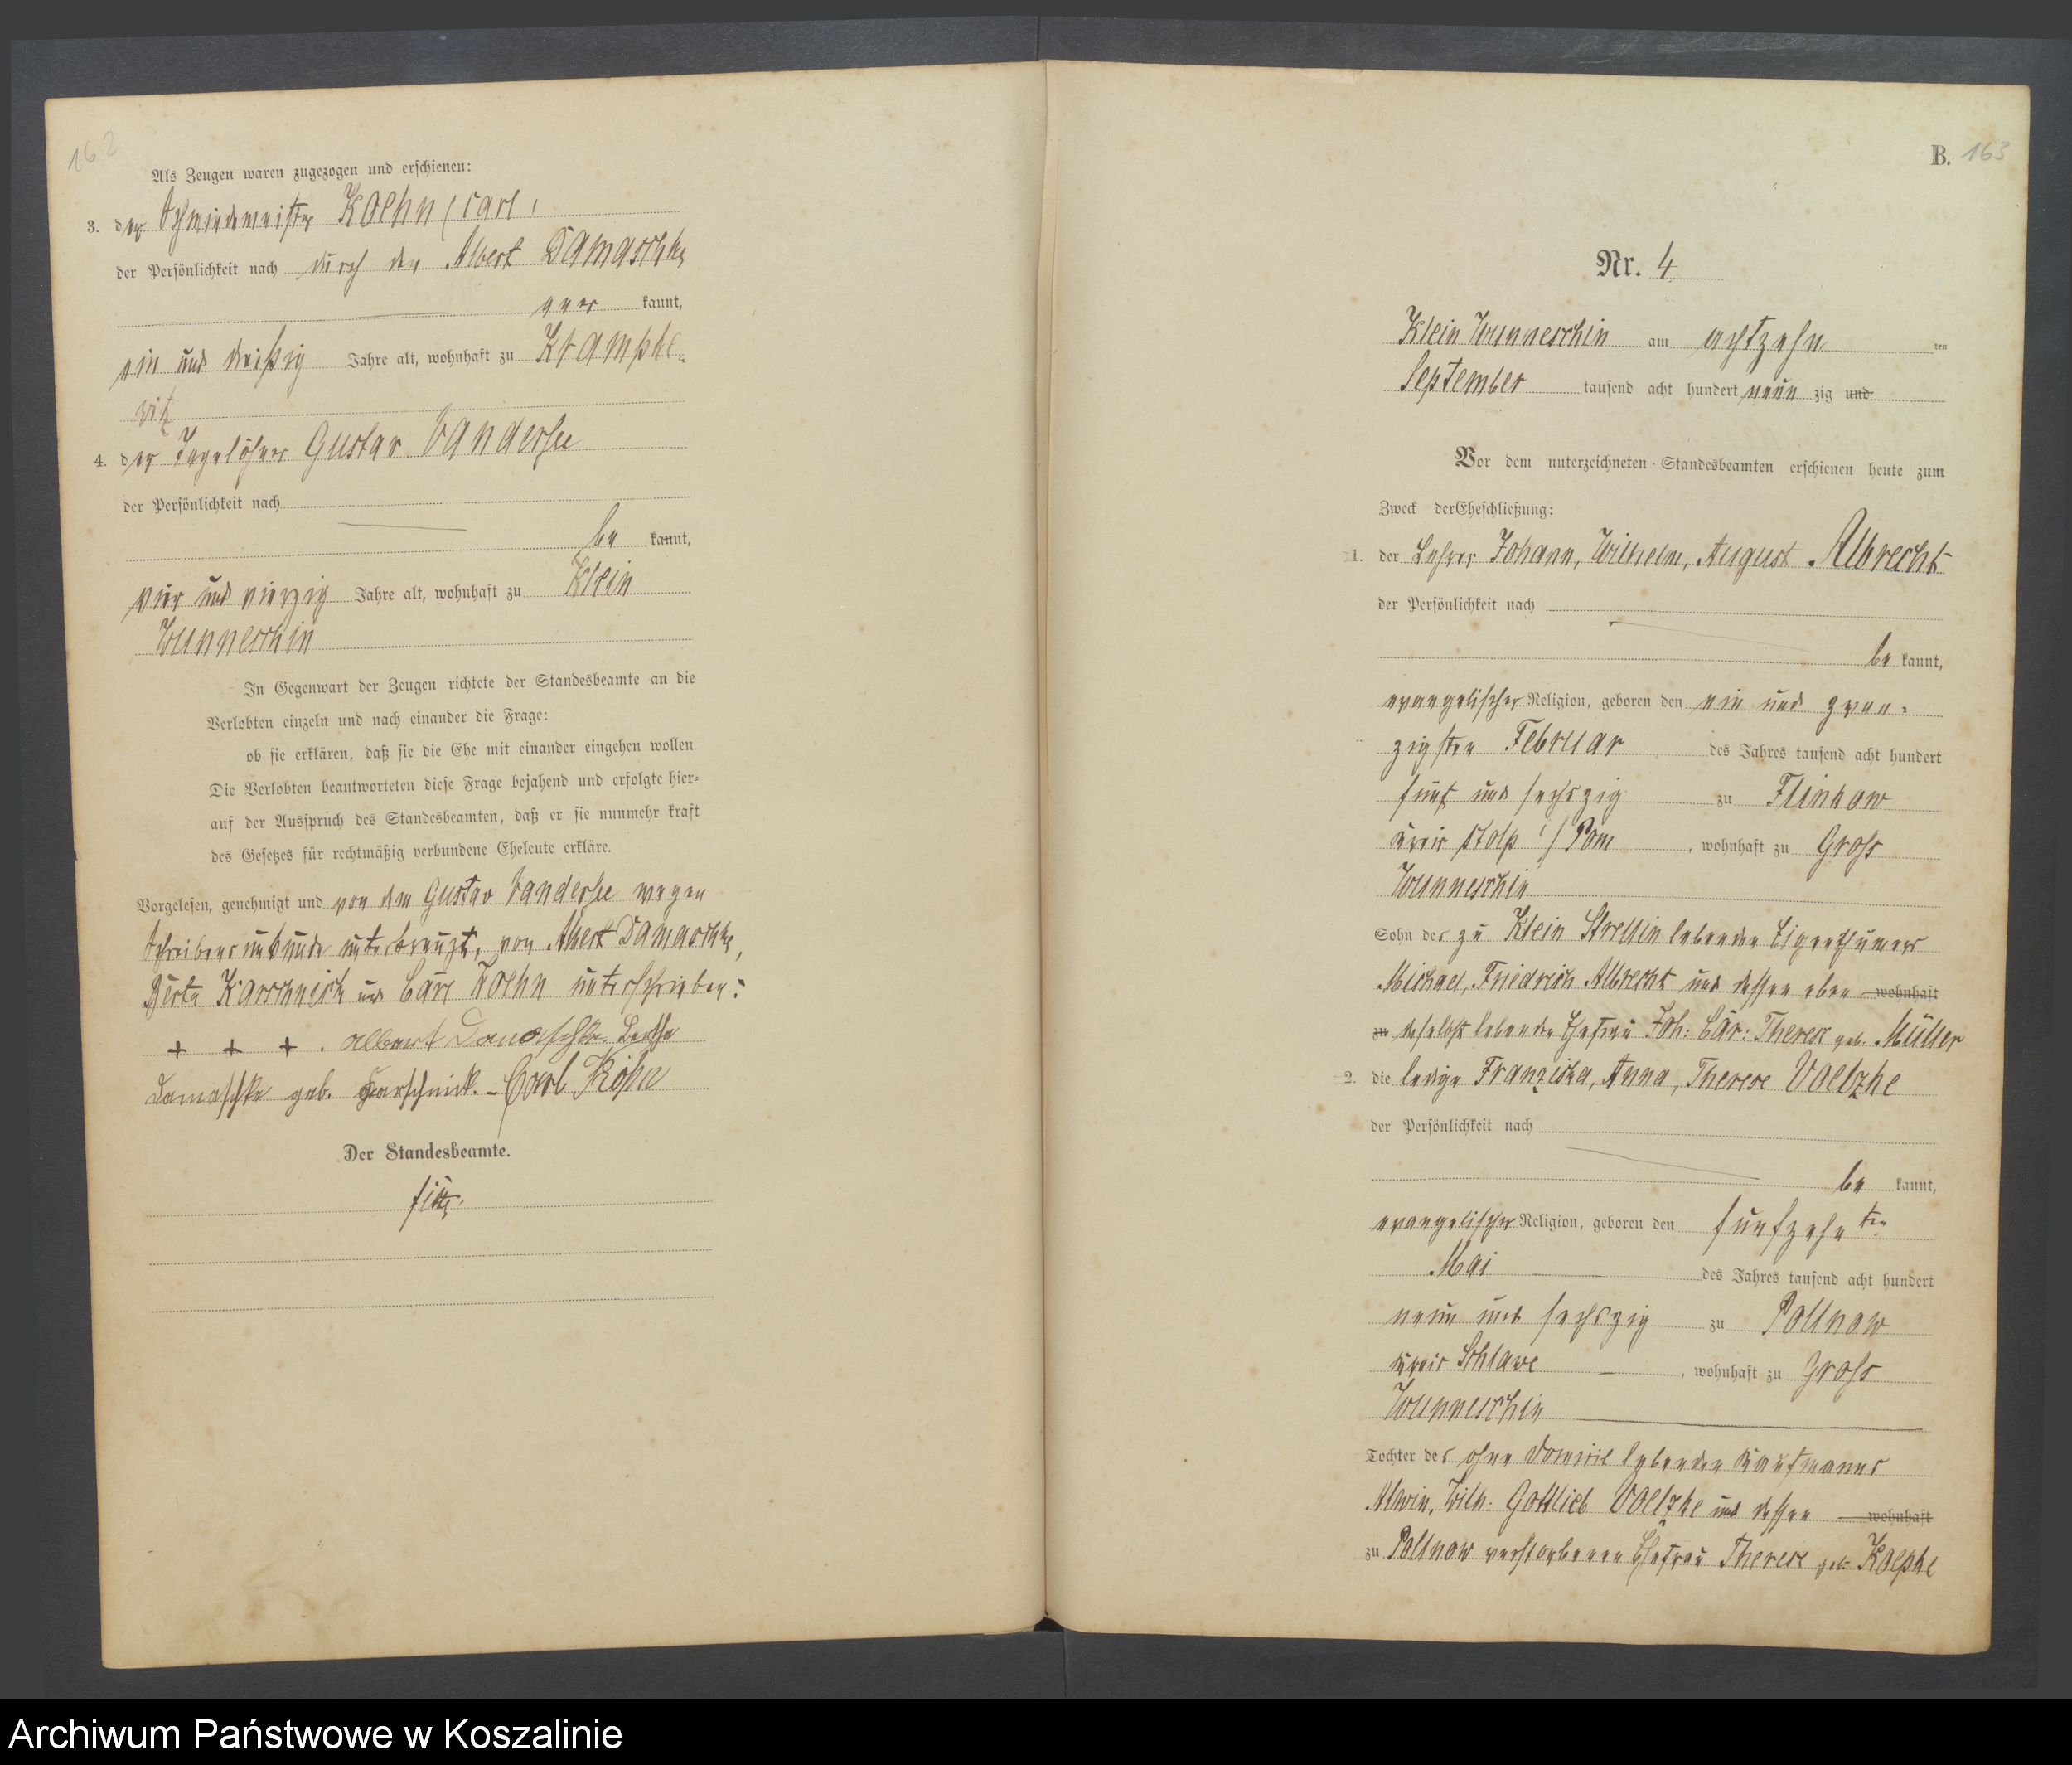 162
Als Zeugen waren zugezogen und erschienen:
3. der Schmiedemeister Koehn, Carl,
der Persönlichkeit nach durch den Albert Damaschke
aner kannt,
ein und dreißig Jahre alt, wohnhaft zu Krampke-
witz
4. der Tagelöhner Gustav Vandersee
der Persönlichkeit nach
be kannt,
vier und vierzig Jahre alt, wohnhaft zu Klein
Wunneschin
In Gegenwart der Zeugen richtete der Standesbeamte an die
Verlobten einzeln und nach einander die Frage:
ob sie erklären, daß sie die Ehe mit einander eingehen wollen
Die Verlobten beantworteten diese Frage bejahend und erfolgte hier-
auf der Ausspruch des Standesbeamten, daß er sie nunmehr kraft
des Gesetzes für rechtmäßig verbundene Eheleute erkläre.
Vorgelesen, genehmigt und von dem Gustav Vandersee wegen
Schreibensunkunde unterkreuzt, von Albert Damaschke,
Berta Karschnick und Carl Koehn unterschrieben:
+ + + . Albert Damaschke. Bertha
Damaschke geb. Karschnick. – Carl Köhn
Der Standesbeamte.
B. 163
Nr. 4
Klein Wunneschin am achtzehn ten
September tausend acht hundert neun zig und
Vor dem unterzeichneten Standesbeamten erschienen heute zum
Zweck der Eheschließung:
1. der Lehrer Johann, Wilhelm, August Albrecht
der Persönlichkeit nach
be kannt,
evangelischer Religion, geboren den ein und zwan-
zigsten Februar des Jahres tausend acht hundert
fünf und sechszig zu Flinkow
Kreis Stolp i/Pom , wohnhaft zu Gross
Wunneschin
Sohn des zu Klein Strellin lebenden Eigenthümers
Michael, Friedrich Albrecht und dessen eben wohnhaft
zu daselbst lebenden Ehefrau Joh: Car: Therese geb. Müller
2. die ledige Franziska, Anna, Therese Voelzke
der Persönlichkeit nach
be kannt,
evangelischer Religion, geboren den fünfzehn ten
Mai des Jahres tausend acht hundert
neun und sechszig zu Pollnow
Kreis Schlawe , wohnhaft zu Gross
Wunneschin
Tochter des ohne Domicil lebenden Kaufmanns
Alwin, Wilh. Gottlieb Voelzke und dessen wohnhaft
zu Pollnow verstorbenen Ehefrau Therese geb. Koepke
Archiwum Państwowe w Koszalinie